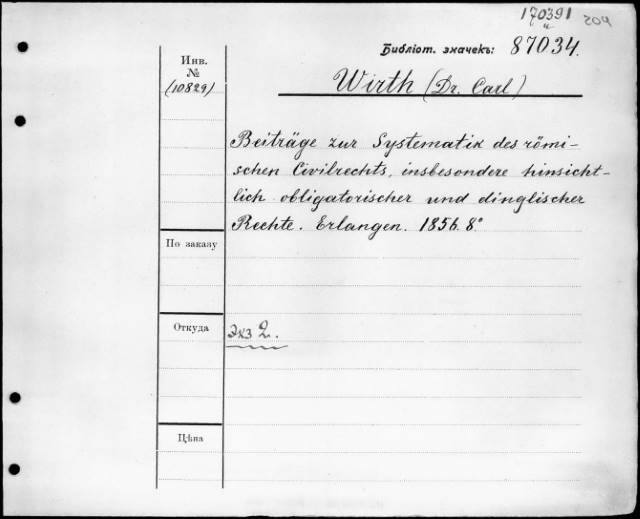 170391
"
204
Библіот. значекъ: 87034.
Инв.
№
(10829)
Wirth (Dr. Carl)
Beiträge zur Systematik des römi-
schen Civilrechts, insbesondere hinsicht-
lich obligatorischer und dinglischer
Rechte. Erlangen. 1856. 8°
По заказу
Откуда
Экз 2.
Цѣна